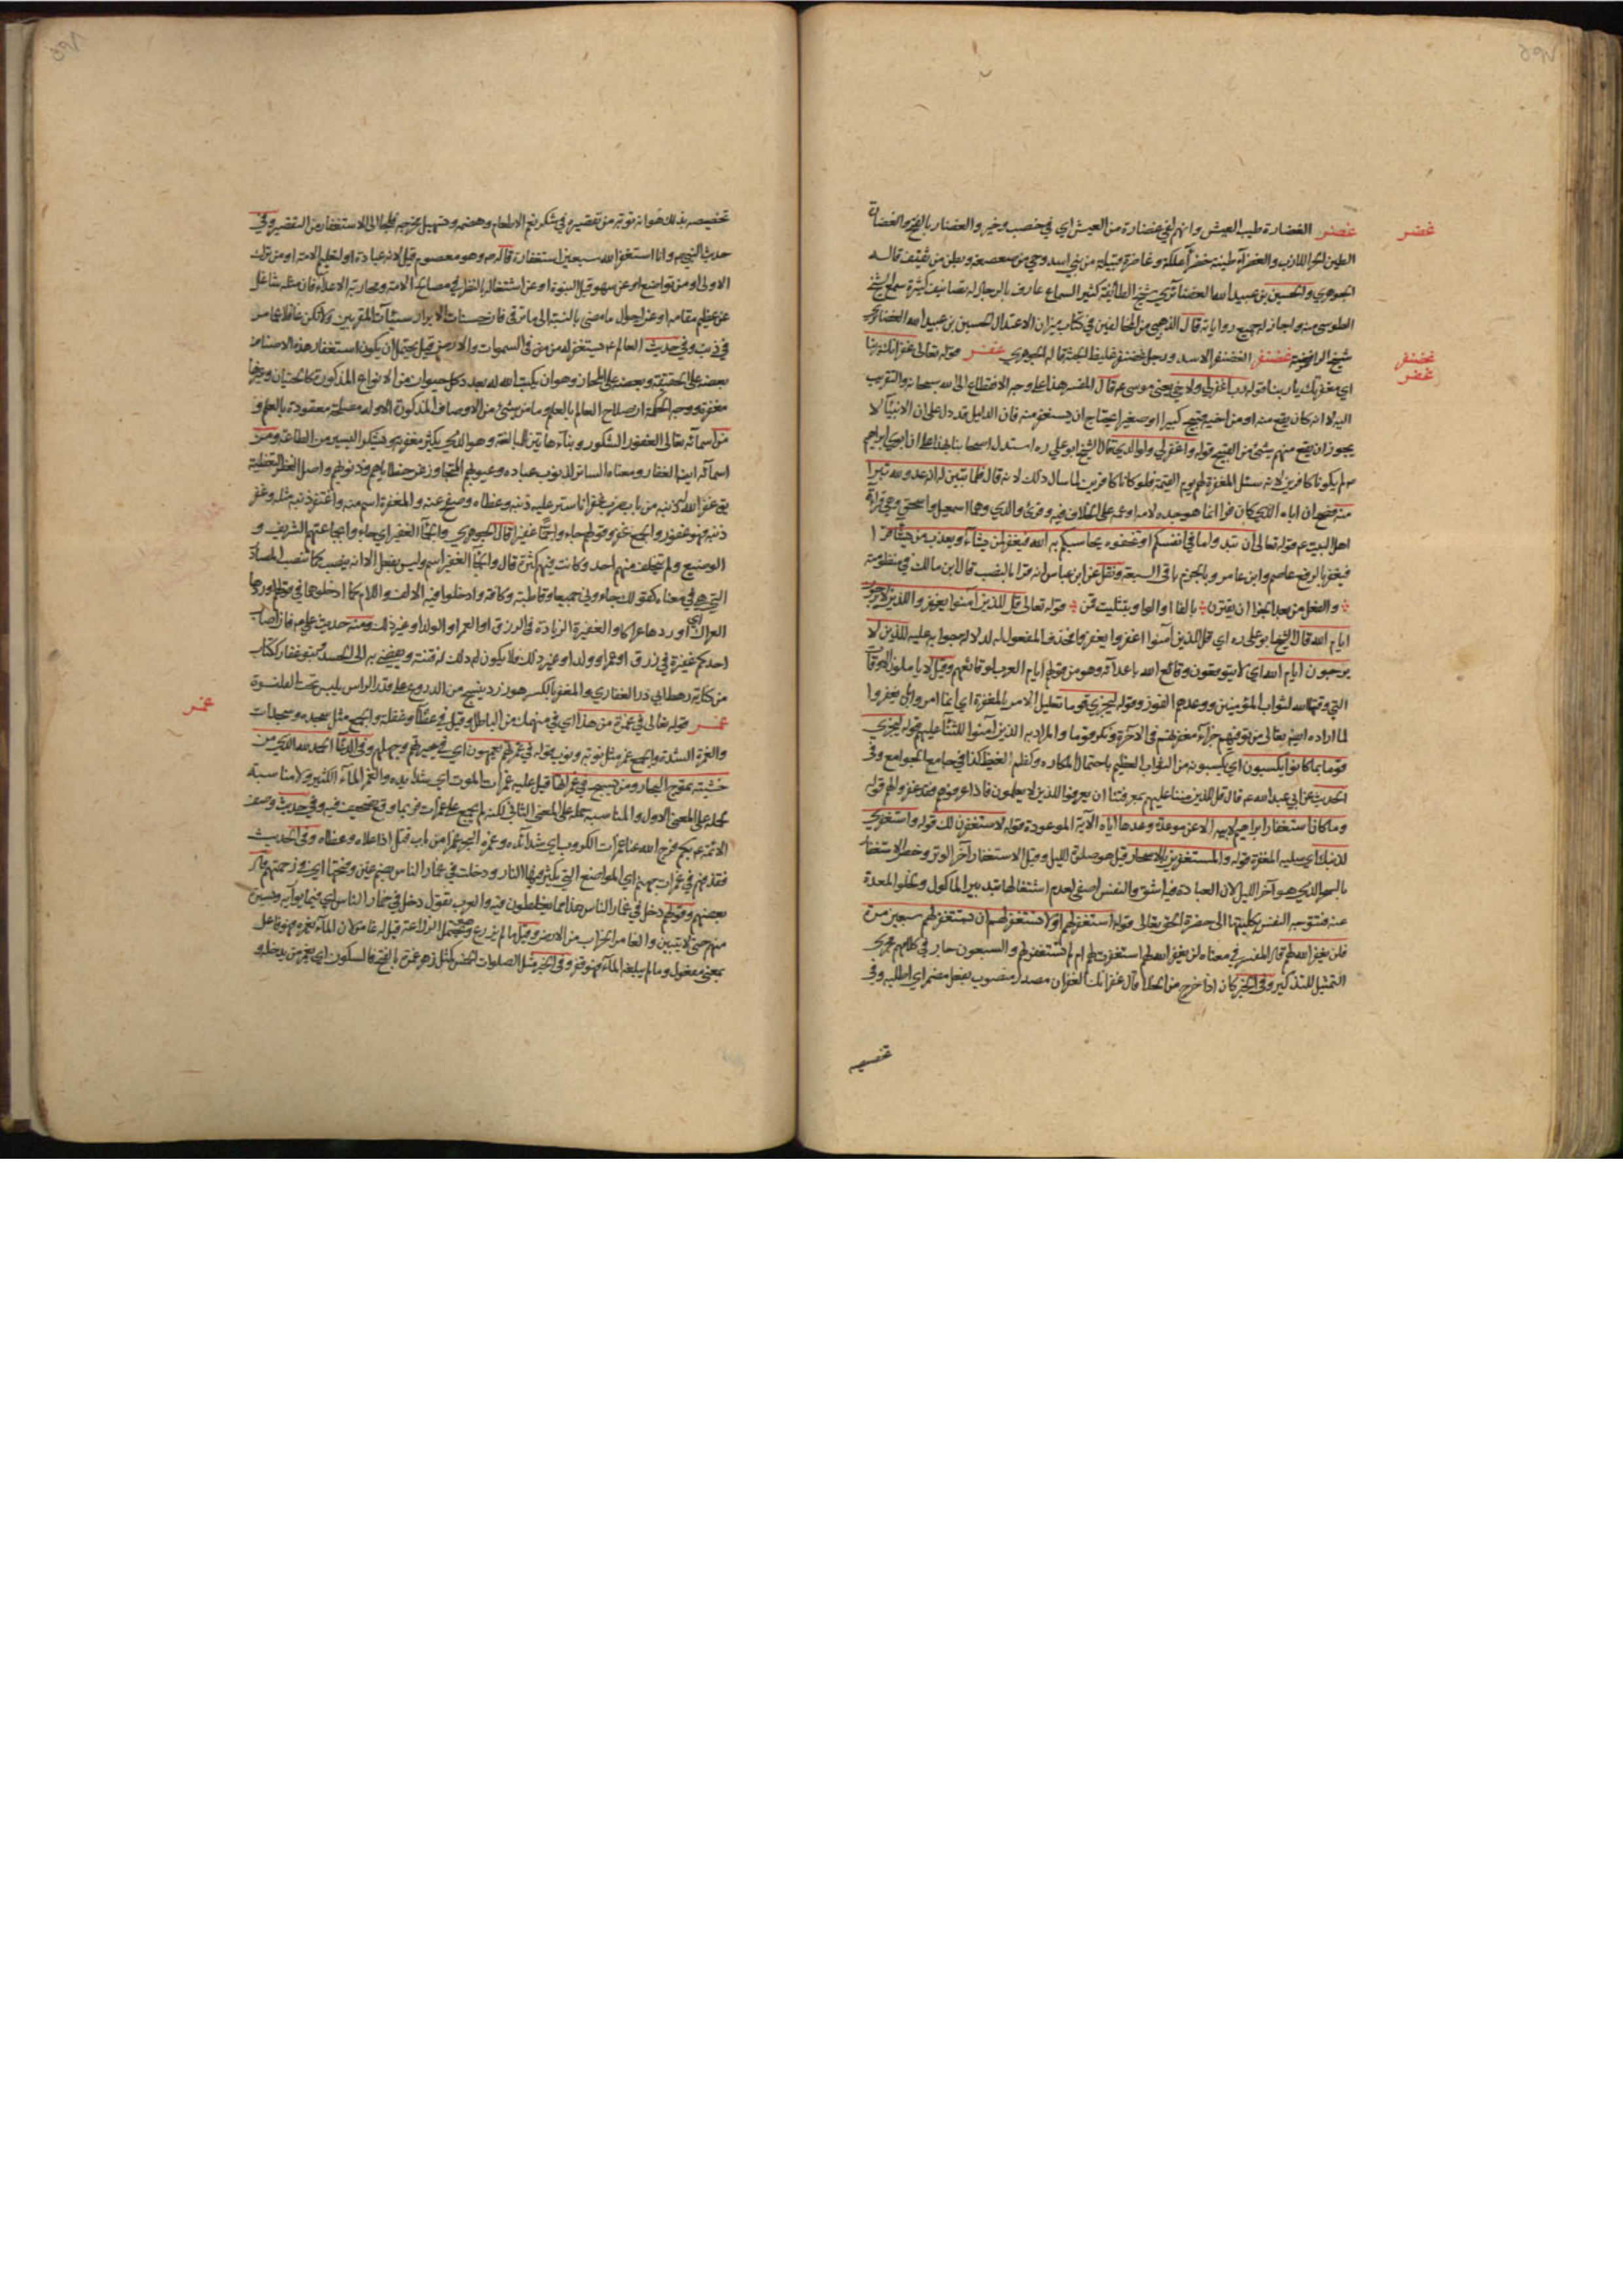 غضر الغضارة طيب العيش وانهم لفي غضارة من العيش اي في خصب وخير والغضار بالفتح والغضارة
الطين الحر اللازب والغضرآء طينة خضرآء علكة وغاضرة قبيلة من بني اسد وحي من صعصعة وبطن من ثقيف قاله
الجوهري والحسين بن عبيد الله الغضائري شيخ الطائفة كثير السماع عارف بالرجال له تصانيف كثيرة سمع الشيخ
الطوسي منه واجاز له جميع رواياته قال الذهبي من المخالفين في كتاب ميزان الاعتدال الحسين بن عبيد الله الغضائري
شيخ الرافضة غضنفر الغضنفر الاسد ورجل غضنفر غليظ الجثة قاله الجوهري غفر قوله تعالى غفرانك ربنا
اي مغفرتك يا ربنا قوله رب اغفر لي ولاخي يعني موسى ع قال المفسر هذا على وجه الانقطاع الى الله سبحانه والتقرب
اليه لا انه كان يقع منه او من اخيه قبيح كبير او صغير يحتاج ان يستغفر منه فان الدليل قد دل على ان الانبيآء لا
يجوز ان يقع منهم شئ من القبيح قوله واغفر لي ولوالدي قال الشيخ ابو علي ره استدل اصحابنا بهذا على ان ابوي ابراهيم
لم يكونا كافرين لانه سئل المغفرة لهم يوم القيمة فلو كانا كافرين لما سال ذلك لانه قال فلما تبين له انه عدو لله تبرا
منه فصح ان اباه الذي كان كافرا انما هو جده لامه او عمه على الخلاف فيه وقرئ ولولدي وهما اسمعيل واسحق وهي قرآءة
اهل البيت ع قوله تعالى ان تبدوا ما في انفسكم او تخفوه يحاسبكم به الله فيغفر لمن يشآء ويعذب من يشآء قرا
فيغفر بالرفع عاصم وابن عامر وبالجزم باقي السبعة ونقل عن ابن عباس انه قرا بالنصب قال ابن مالك في منظومته
والفعل من بعد الجزا ان يقترن بالفا او الواو بتثليث قمن قوله تعالى قل للذين آمنوا يغفروا للذين لا يرجون
ايام الله قال الشيخ ابو علي ره اي قل للذين آمنوا اغفروا يغفروا فحذف المفعول له لدلالة جوابه عليه للذين لا
يرجون ايام الله اي لا يتوقعون وقائع الله باعدائه وهو من قولهم ايام العرب لوقائعهم وقيل لا ياملون الاوقات
التي وقتها الله لثواب المؤمنين ووعدهم الفوز وقوله ليجزي قوما تعليل الامر بالمغفرة اي انما امروا بان يغفروا
لما اراده الله تعالى من توفيهم جزآء مغفرتهم في الآخرة ونكر قوما والمراد به الذين آمنوا للثنآء عليهم قوله ليجزي
قوما بما كانوا يكسبون اي يكسبونه من الثواب العظيم باحتمال المكاره وكظم الغيظ كذا في جامع الجوامع وفي
الحديث عن ابي عبد الله ع قال قل للذين مننا عليهم بمعرفتنا ان يعرفوا الذين لا يعلمون فاذا عرفوهم فقد غفروا لهم قوله
وما كان استغفار ابراهيم لابيه الا عن موعدة وعدها اياه الآية الموعودة قوله لاستغفرن لك قوله واستغفري
لذنبك اي سليه المغفرة قوله والمستغفرين بالاسحار قيل هو صلوة الليل وقيل الاستغفار آخر الوتر وخص الاستغفار
بالسحر الذي هو آخر الليل لان العبادة فيه اشق والنفس اصفى لعدم اشتغالها بتدبير الماكول وخلو المعدة
عنه فتتوجه النفس بكليتها الى حضرة الحق تعالى قوله استغفر لهم او لا تستغفر لهم ان تستغفر لهم سبعين مرة
فلن يغفر الله لهم قال المفسر في معناه لن يغفر الله لهم استغفرت لهم ام لم تستغفر لهم والسبعون جار في كلامهم مجرى
التمثيل للتكثير وفي الخبر كان اذا خرج من الخلا قال غفرانك الغفران مصدر منصوب بفعل مضمر اي اطلبه وفي
غضر
غضنفر
غفر
تخصيصه
تخصيصه بذلك هو انه توبة من تقصيره في شكر نعم الاطعام وهضمه وتسهيل مخرجه فلجا الى الاستغفار من التقصير وفي
حديث النبي ص وانا استغفر الله سبعين استغفارة قاله ص وهو معصوم قيل لانه عبادة او لتعليم الامة او من ترك
الاولى او من تواضع او عن سهو قبل النبوة او عن اشتغاله بالنظر في مصالح الامة ومحاربة الاعدآء فان مثله شاغل
عن عظيم مقامه او عن احوال ما مضى بالنسبة الى ما ترقى فان حسنات الابرار سيئات المقربين
وفي حديث العالم ع يستغفر له من في السموات والارض قيل يحتمل ان يكون استغفار هذه الاصناف
بعضه على الحقيقة وبعضه على المجاز وهو ان يكتب الله له بعدد كل حيوان من الانواع المذكورة كالحيتان وغيرها
مغفرة ووجه الحكمة ان صلاح العالم بالعلم وما من شئ من الاوصاف المذكورة الا وله مصلحة معقودة بالعلم و
من اسمآئه تعالى الغفور الشكور وبنآء هاتين للمبالغة وهو الذي يكثر مغفرته ويشكر اليسير من الطاعة ومن
اسمآئه ايضا الغفار ومعناه الساتر لذنوب عباده وعيوبهم المتجاوز عن خطاياهم وذنوبهم واصل الغفر التغطية
يق غفر الله له ذنبه من باب ضرب غفرانا ستر عليه ذنبه وغطاه وصفح عنه والمغفرة اسم منه واغتفر ذنبه مثله وغفر
ذنبه فهو غفور والجمع غفر وقولهم جاءوا جمآء غفيرا قال الجوهري والجمآء الغفير اي جاءوا بجماعتهم الشريف و
الوضيع ولم يتخلف منهم احد وكانت فيهم كثرة قال والجمآء الغفير اسم وليس بفعل الا انه ينصب كما تنصب المصادر
التي هي في معناه كقولك جاءوني جميعا وقاطبة وكافة وادخلوا فيه الالف واللام كما ادخلوهما في قولهم اوردها
العراك اي اوردها عراكا والغفيرة الزيادة في الرزق او العمر او الولد او غير ذلك ومنه حديث علي ع فاذا اصاب
احدكم غفيرة في رزق او عمر او ولد او غير ذلك فلا يكون له ذلك فتنة ويفضي به الى الحسد وبنو غفار ككتاب
من كنانة رهط ابي ذر الغفاري والمغفر بالكسر هو زرد ينسج من الدروع على قدر الراس يلبس تحت القلنسوة
غمر قوله تعالى في غمرة من هذا اي في منهمك من الباطل وقيل في غطآء وغفلة والجمع مثل سجدة وسجدات
والغمرة الشدة والجمع غمر مثل نوبة ونوب قوله في غمرتهم يعمهون اي في حيرتهم وجهلهم وفي الدعآء الحمد لله الذي من
خشيته تموج البحار ومن يسبح في غمراتها قيل عليه غمرات الموت اي شدائده والغمر المآء الكثير ولا مناسبة
لحمله على المعنى الاول والمناسبة حمله على المعنى الثاني لكنه لم يجمع على غمرات فربما وقع تصحيف فيه وفي حديث وصف
الائمة ع بكم فرج الله عنا غمرات الكروب اي شدائده وغمره البحر غمرا من باب قتل اذا علاه وغطاه وفي الحديث
فقذفهم في غمرات جهنم اي المواضع التي يكثر فيها النار ودخلت في غمار الناس بضم غين وفتحها اي في زحمتهم
وقولهم دخل في غمار الناس هذا مما يغلطون فيه والعرب تقول دخل في خمار الناس اي فيما يواريه ويستره
منهم حتى لا يتبين والغامر الخراب من الارض وقيل ما لم يزرع وهو يحتمل الزراعة قيل له غامر لان المآء يغمره فهو فاعل
بمعنى مفعول وما لم يبلغه المآء فهو قفر وفي الخبر مثل الصلوات الخمس كمثل نهر غمر بالفتح فالسكون اي يغمر من يدخله و
غمر